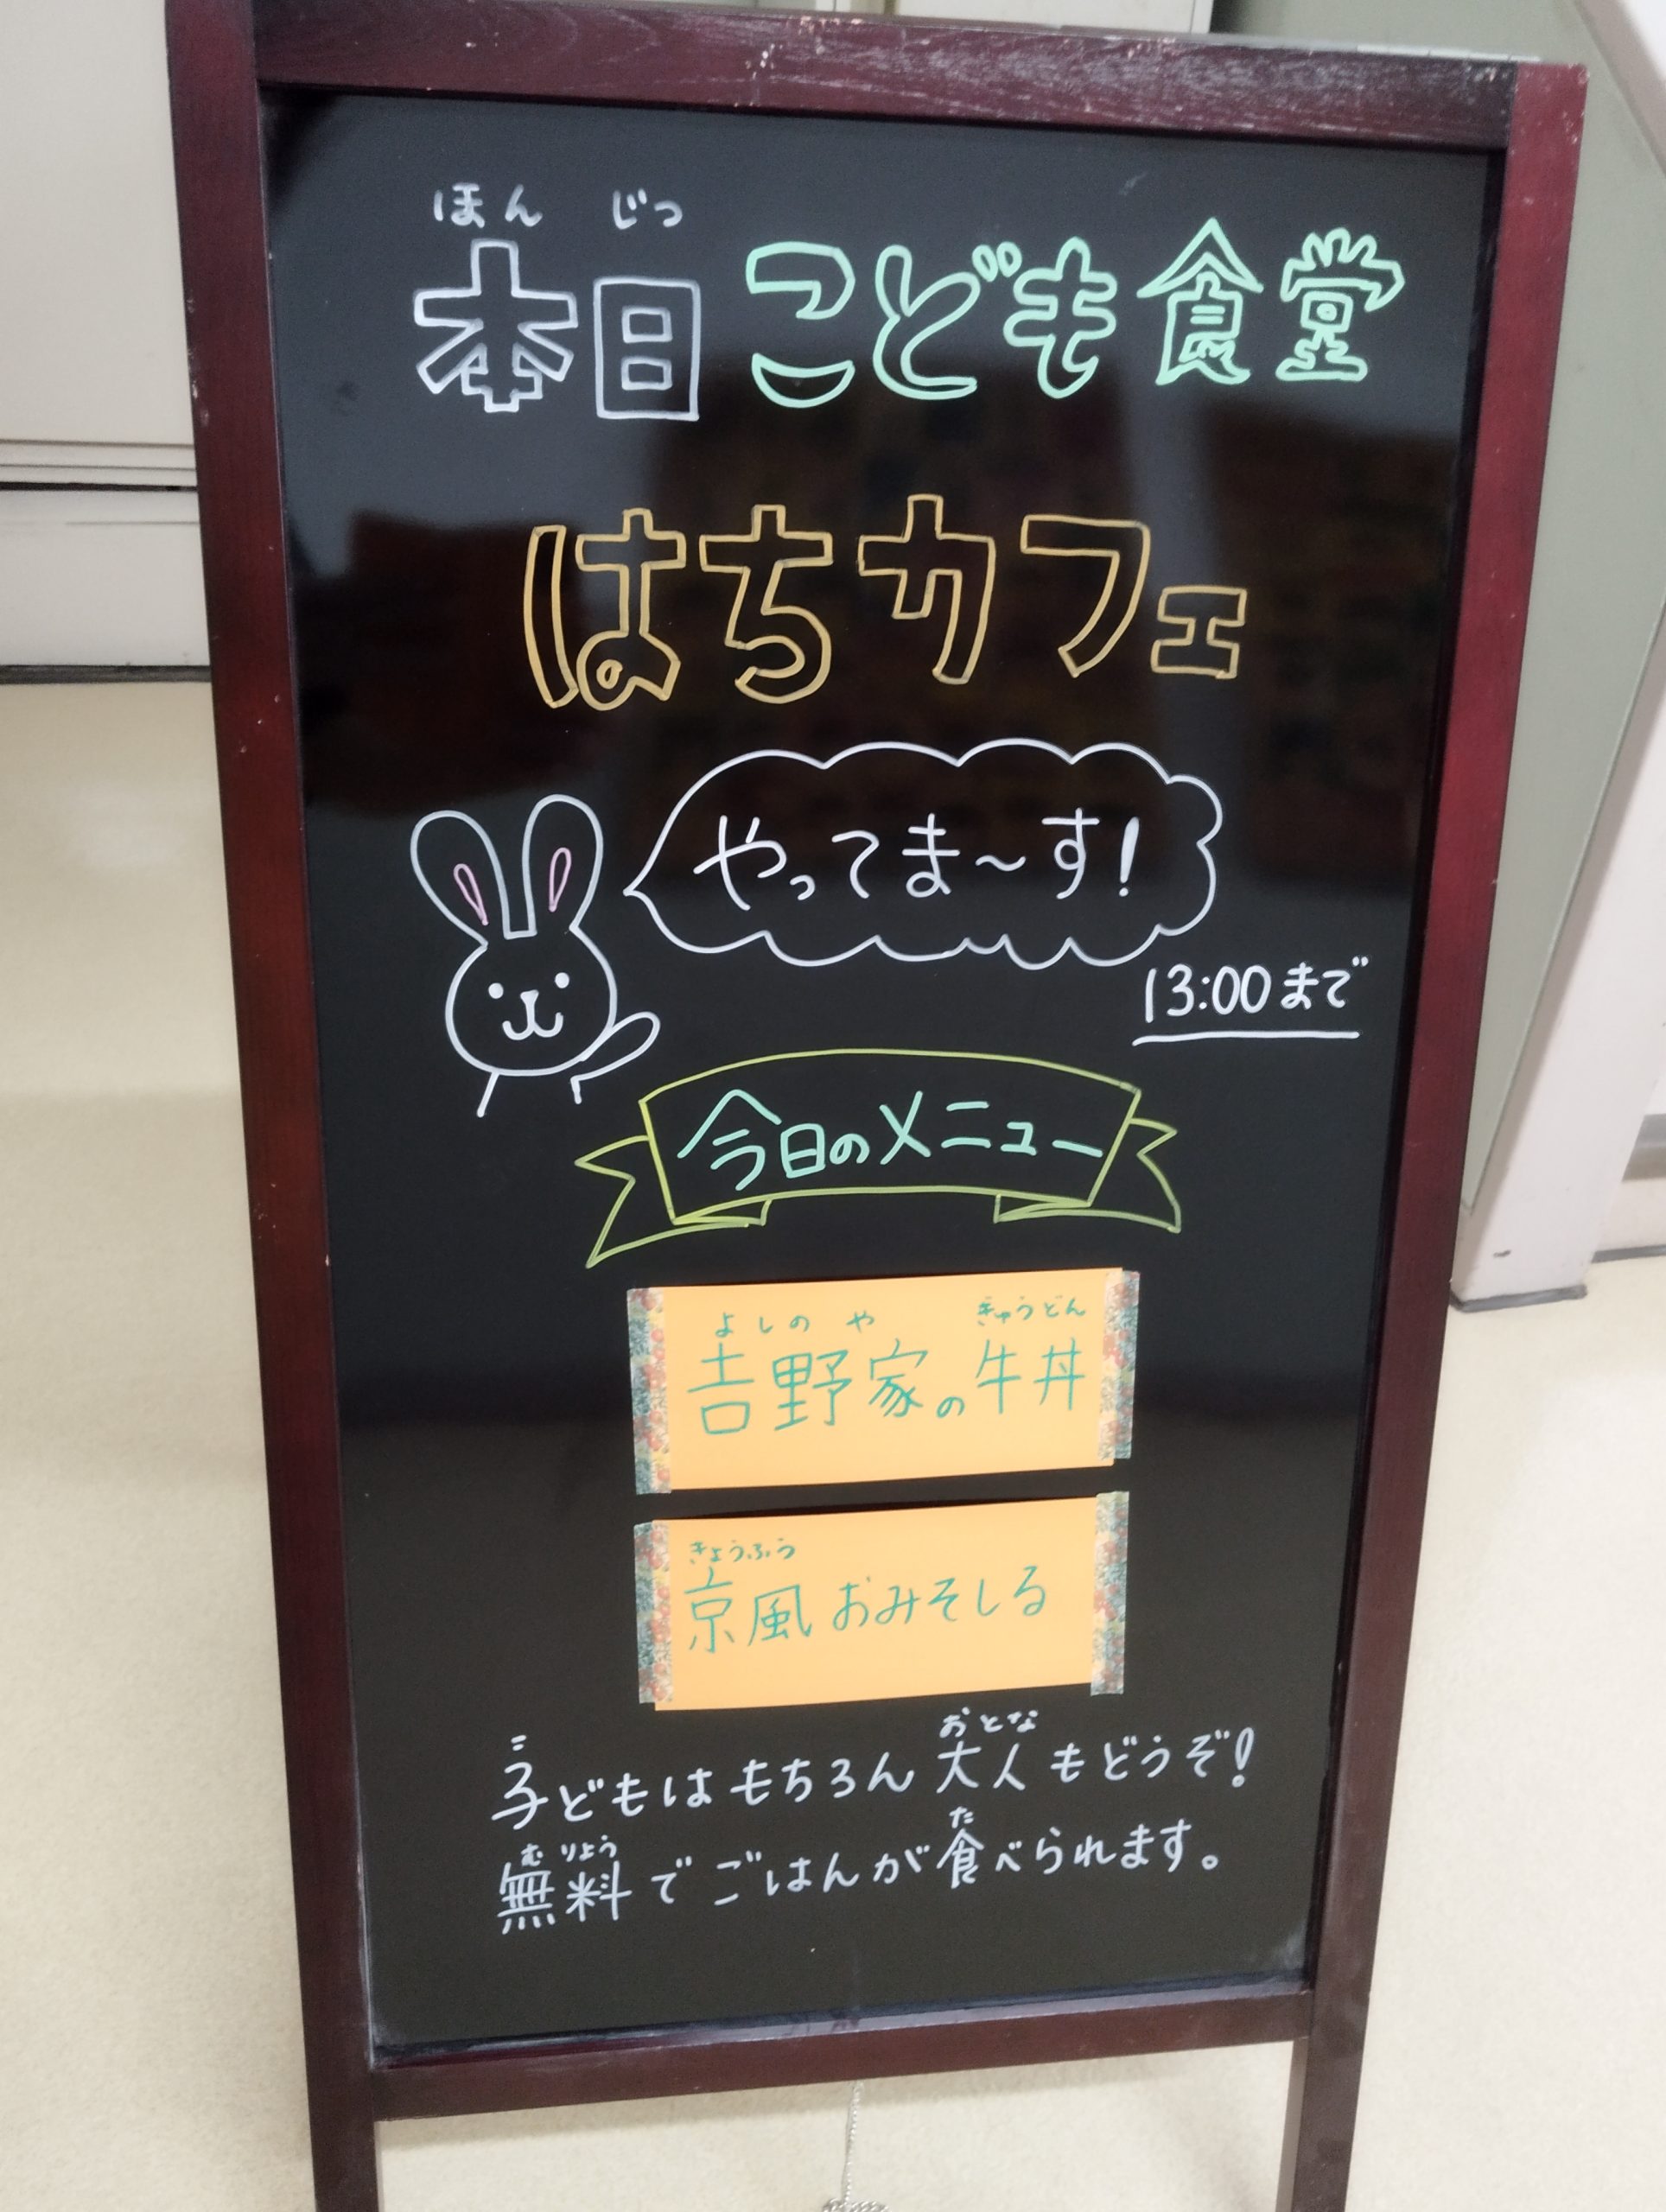 ほんじつ
本日こども食堂
はちカフェ
やってま〜す!
13:00まで
今日のメニュー
よしのや ぎゅうどん
𠮷野家の牛丼
きょうふう
京風おみそしる
こ おとな
子どもはもちろん大人もどうぞ!
むりょう た
無料でごはんが食べられます。